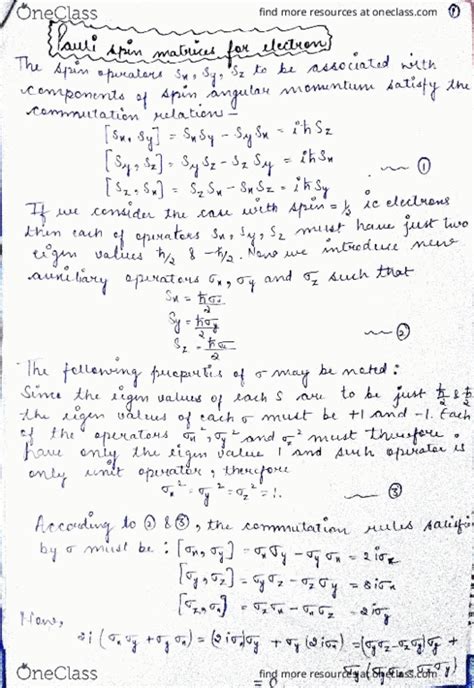 OneClass
find more resources at oneclass.com
1
Pauli spin matrices for electron
The spin operators Sx, Sy, Sz to be associated with
components of spin angular momentum satisfy the
commutation relation —
[Sx, Sy] = SxSy – SySx = iħSz
[Sy, Sz] = SySz – SzSy = iħSx
[Sz, Sx] = SzSx – SxSz = iħSy — ①
If we consider the case with spin = ½ ie electrons
then each of operators Sx, Sy, Sz must have just two
eigen values ħ/2 & –ħ/2. Now we introduce new
auxiliary operators σx, σy and σz such that
Sx = ħσx/2
Sy = ħσy/2 — ②
Sz = ħσz/2
The following properties of σ may be noted:
Since the eigen values of each S are to be just ħ/2 & ħ/2
the eigen values of each σ must be +1 and -1. Each
of the operators σx², σy² and σz² must therefore
have only the eigen value 1 and such operator is
only unit operator, therefore
σx² = σy² = σz² = 1. — ③
According to ② & ③, the commutation rules satisfied
by σ must be: [σx, σy] = σxσy – σyσx = 2iσz
[σy, σz] = σyσz – σzσy = 2iσx
[σz, σx] = σzσx – σxσz = 2iσy
Now,
2i(σxσy + σyσx) = (2iσx)σy + σy(2iσx) = (σyσz–σzσy)σy +
σy(σyσz–σzσy)
= 0
OneClass
find more resources at oneclass.com